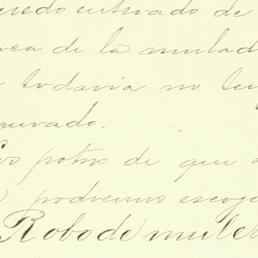 quedo enterado de
rca de la mulad
todavia no ten
gurado.
Los potros de que
podremos escoge
Robo de mule